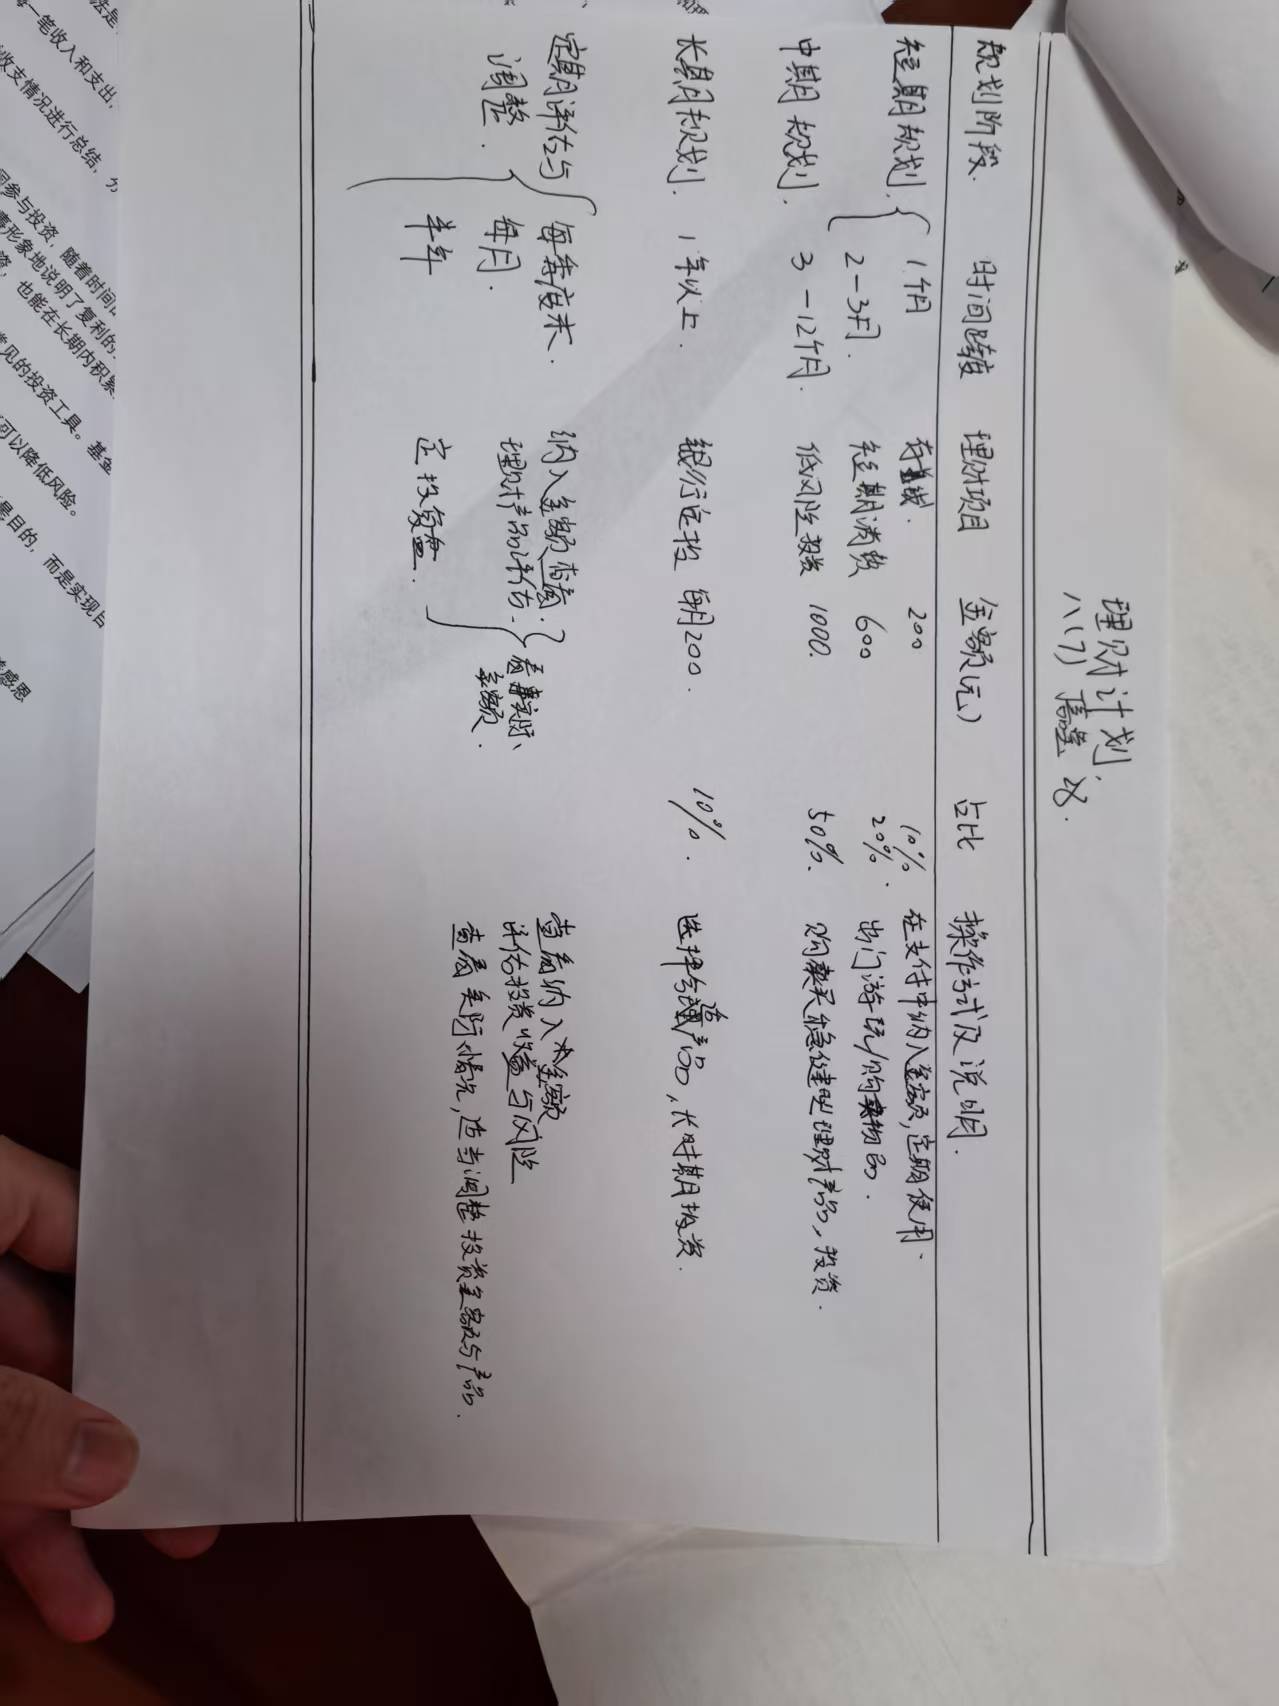 理财计划
八(7)
规划阶段 时间跨度 理财项目 金额(元) 占比 操作方式及说明
短期规划 1个月 存钱 200 10% 在支付中纳入金额,定期使用.
2-3月. 短期消费 600 20%. 出门游玩/购物品.
中期规划. 3-12个月. 低风险投资 1000. 50%. 购买稳健型理财产品,投资.
长期规划. 1年以上. 银行定投 每月200. 10%. 选择合适产品,长期投资.
定期评估与 每季度末. 纳入金额查看. 查看纳入金额
调整. 每月. 理财产品评估. 看实际金额. 评估投资收益与风险
半年 定投复盘. 查看实际情况,适当调整投资金额与产品.
一笔收入和支出,
收支情况进行总结,
参与投资,随着时间
形象地说明了复利的
也能在长期内积累
见的投资工具。基金
可以降低风险。
是目的,而是实现
感恩